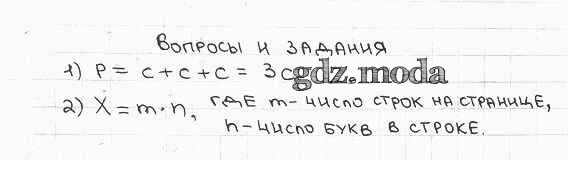 Вопросы и задания
1) P = c + c + c = 3c gdz.moda
2) X = m · n, где m - число строк на странице,
n - число букв в строке.